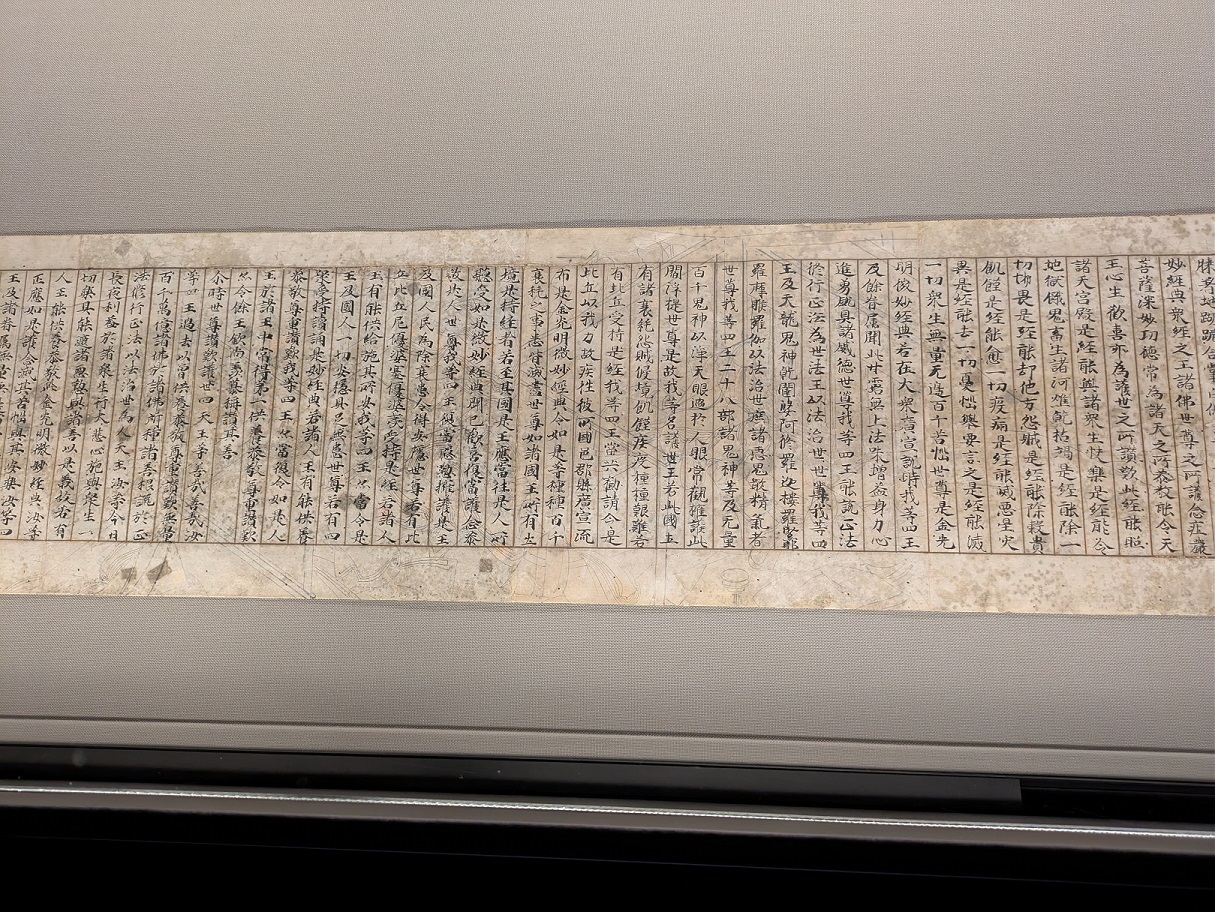 妙經典眾經之王諸佛世尊之所護念莊嚴
菩薩深妙功德常為諸天之所恭敬能令天
王心生歡喜亦為護世之所讚歎此經能照
諸天宮殿是經能與諸眾生快樂是經能令
地獄餓鬼畜生諸河燋乾枯竭是經能除一
切怖畏是經能却他方怨賊是經能除穀貴
飢饉是經能愈一切疫病是經能滅惡星灾
異是經能去一切憂惱舉要言之是經能滅
一切眾生無量无邊百千苦惱世尊是金光
明微妙經典若在大眾廣宣說時我等四王
及餘眷屬聞此甘露無上法味增益身力心
進勇銳具諸威德世尊我等四王能說正法
修行正法為世法王以法治世世尊我等四
王及天龍鬼神乾闥婆阿脩羅迦樓羅緊那
羅摩睺羅伽以法治世遮諸惡鬼噉精氣者
世尊我等四王二十八部諸鬼神等及无量
百千鬼神以淨天眼過於人眼常觀擁護此
閻浮提世尊是故我等名護世王若此國土
有諸衰耗怨賊侵境飢饉疾疫種種艱難若
有比丘受持是經我等四王當共勸請令是
比丘以我力故疾往彼所國邑郡縣廣宣流
布是金光明微妙經典令如是等種種百千
衰耗之事悉皆滅盡世尊如諸國王所有土
境是持經者若至其國是王應當往是人所
聽受如是微妙經典聞已歡喜復當護念恭
敬是人世尊我等四王復當勤心擁護是王
及國人民為除衰患令得安隱世尊若有比
丘比丘尼優婆塞優婆夷受持是經若諸人
王有能供給施其所安我等四王亦當令是
王及國人一切安隱具足無患世尊若有四
眾受持讀誦是妙經典若諸人王有能供養
恭敬尊重讚歎我等四王亦當復令如是人
王於諸王中常得第一供養恭敬尊重讚歎
亦令餘王欽尚羨慕稱讚其善
尒時世尊讚歎護世四天王善哉善哉汝
等四王過去以曾供養恭敬尊重讚歎無量
百千萬億諸佛於諸佛所種諸善根說於正
法修行正法以法治世為人天王汝等今日
長夜利益於諸眾生行大悲心施與眾生一
切樂具能遮諸惡勸與諸善以是義故若有
人王能供養恭敬此金光明微妙經典汝等
正應如是護念滅其苦惱與其安樂汝等四
王及諸眷屬無量無邊